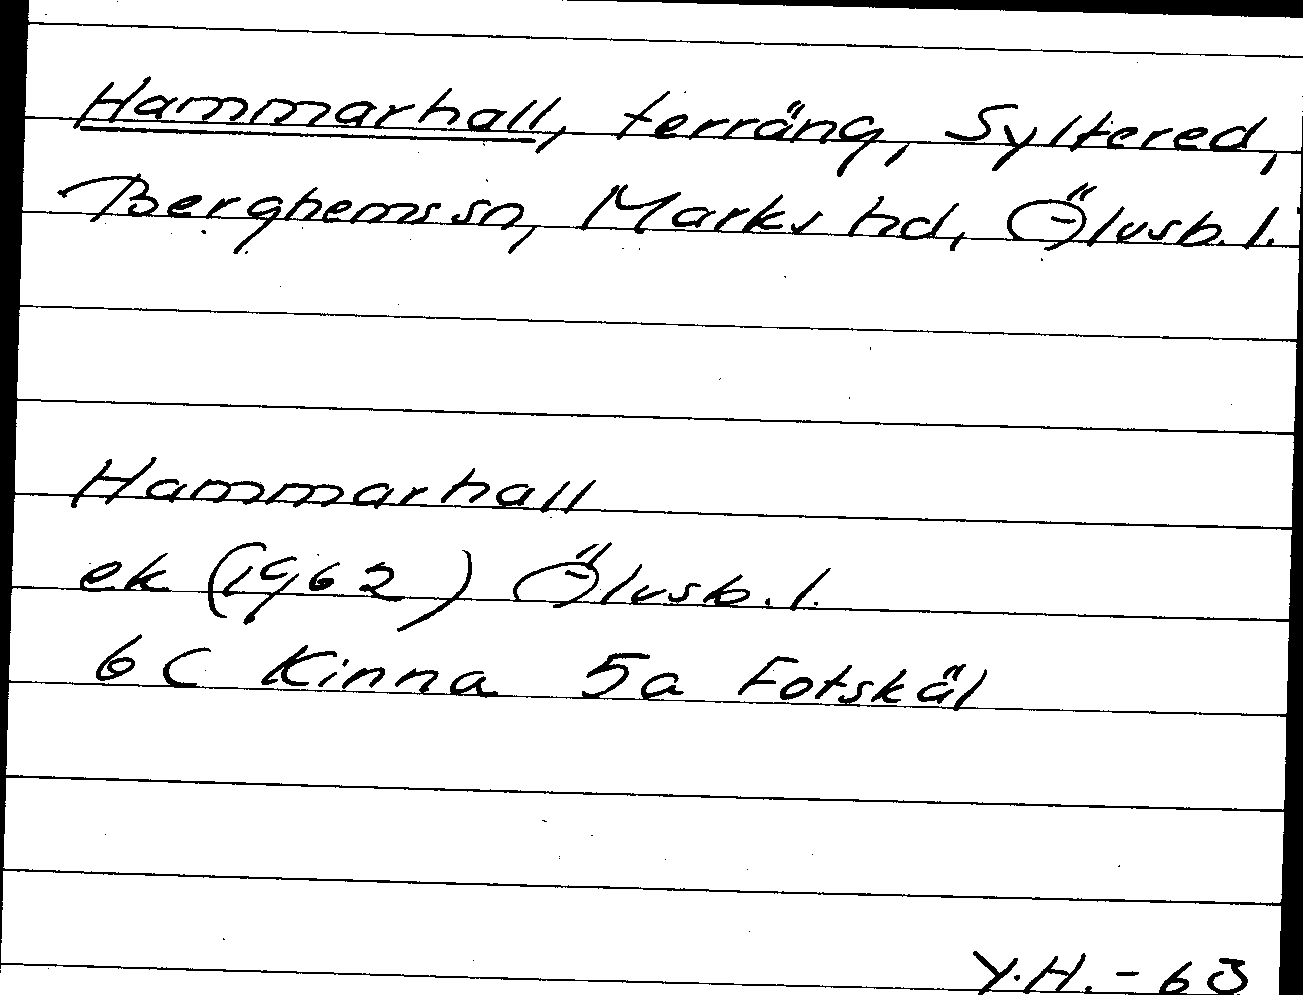 Hammarhall, terräng, Syltered,
Berghems sn, Marks hd, Älvsb. l.
Hammarhall
ek (1962) Älvsb. l.
6 C Kinna 5a Fotskäl
Y.H. - 63